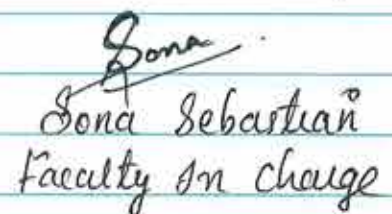 Sona
Sona Sebastian
Faculty In Charge